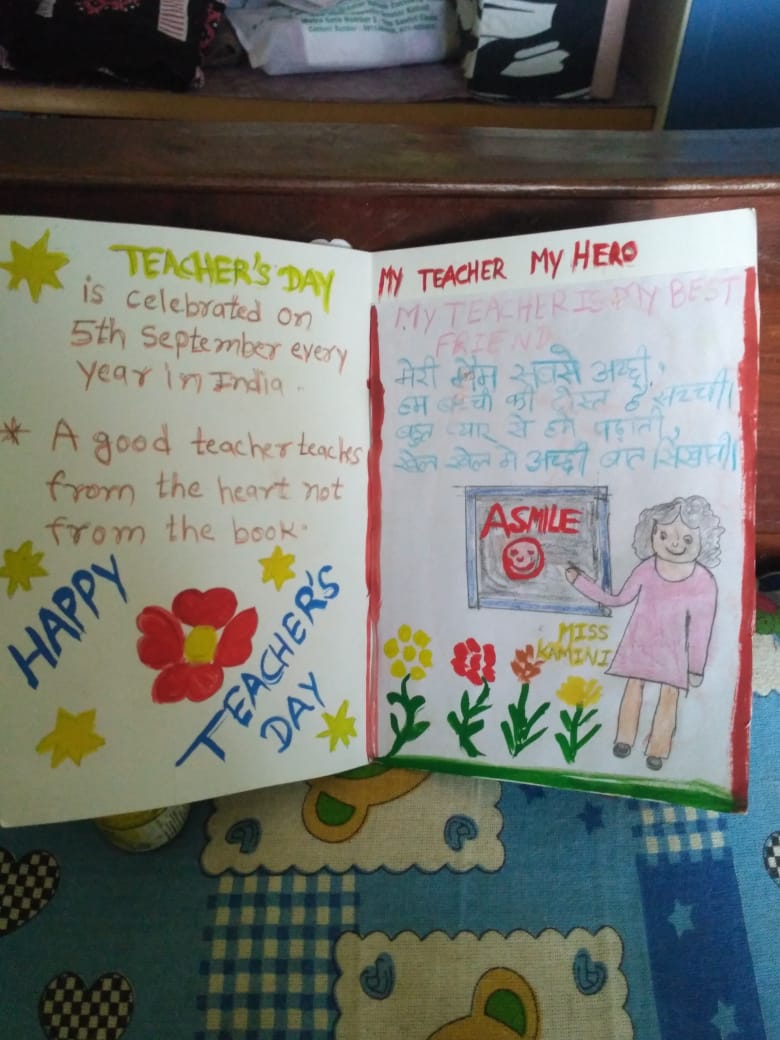 TEACHER'S DAY
is celebrated on
5th September every
year in India.
* A good teacher teaches
from the heart not
from the book.
HAPPY
TEACHER'S
DAY
MY TEACHER MY HERO
MY TEACHER IS MY BEST
FRIEND
मेरी मैम सबसे अच्छी,
हम बच्चों की दोस्त है सच्ची।
बहुत प्यार से हमें पढ़ाती,
खेल खेल में अच्छी बात सिखाती।
A SMILE
MISS
KAMINI